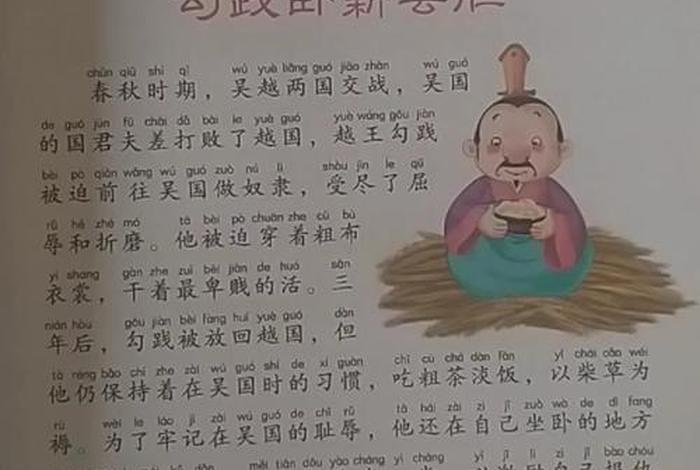 勾践卧薪尝胆
chūn qiū shí qī wú yuè liǎng guó jiāo zhàn wú guó
春秋时期，吴越两国交战，吴国
de guó jūn fū chāi dǎ bài le yuè guó yuè wáng gōu jiàn
的国君夫差打败了越国，越王勾践
bèi pò qián wǎng wú guó zuò nú lì shòu jìn le qū
被迫前往吴国做奴隶，受尽了屈
rǔ hé zhé mó tā bèi pò chuān zhe cū bù
辱和折磨。他被迫穿着粗布
yī shang gàn zhe zuì bēi jiàn de huó sān
衣裳，干着最卑贱的活。三
nián hòu gōu jiàn bèi fàng huí yuè guó dàn
年后，勾践被放回越国，但
tā réng bǎo chí zhe zài wú guó shí de xí guàn chī cū chá dàn fàn yǐ chái cǎo wéi
他仍保持着在吴国时的习惯，吃粗茶淡饭，以柴草为
rù wèi le láo jì zài wú guó de chǐ rǔ tā hái zài zì jǐ zuò wò de dì fang
褥。为了牢记在吴国的耻辱，他还在自己坐卧的地方
dǎn měi tiān dōu yào cháng yi cháng zì jǐ bào chóu